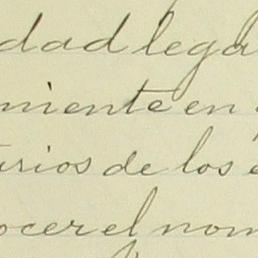 dad lega
miente en
urios de los e
ocer el nom